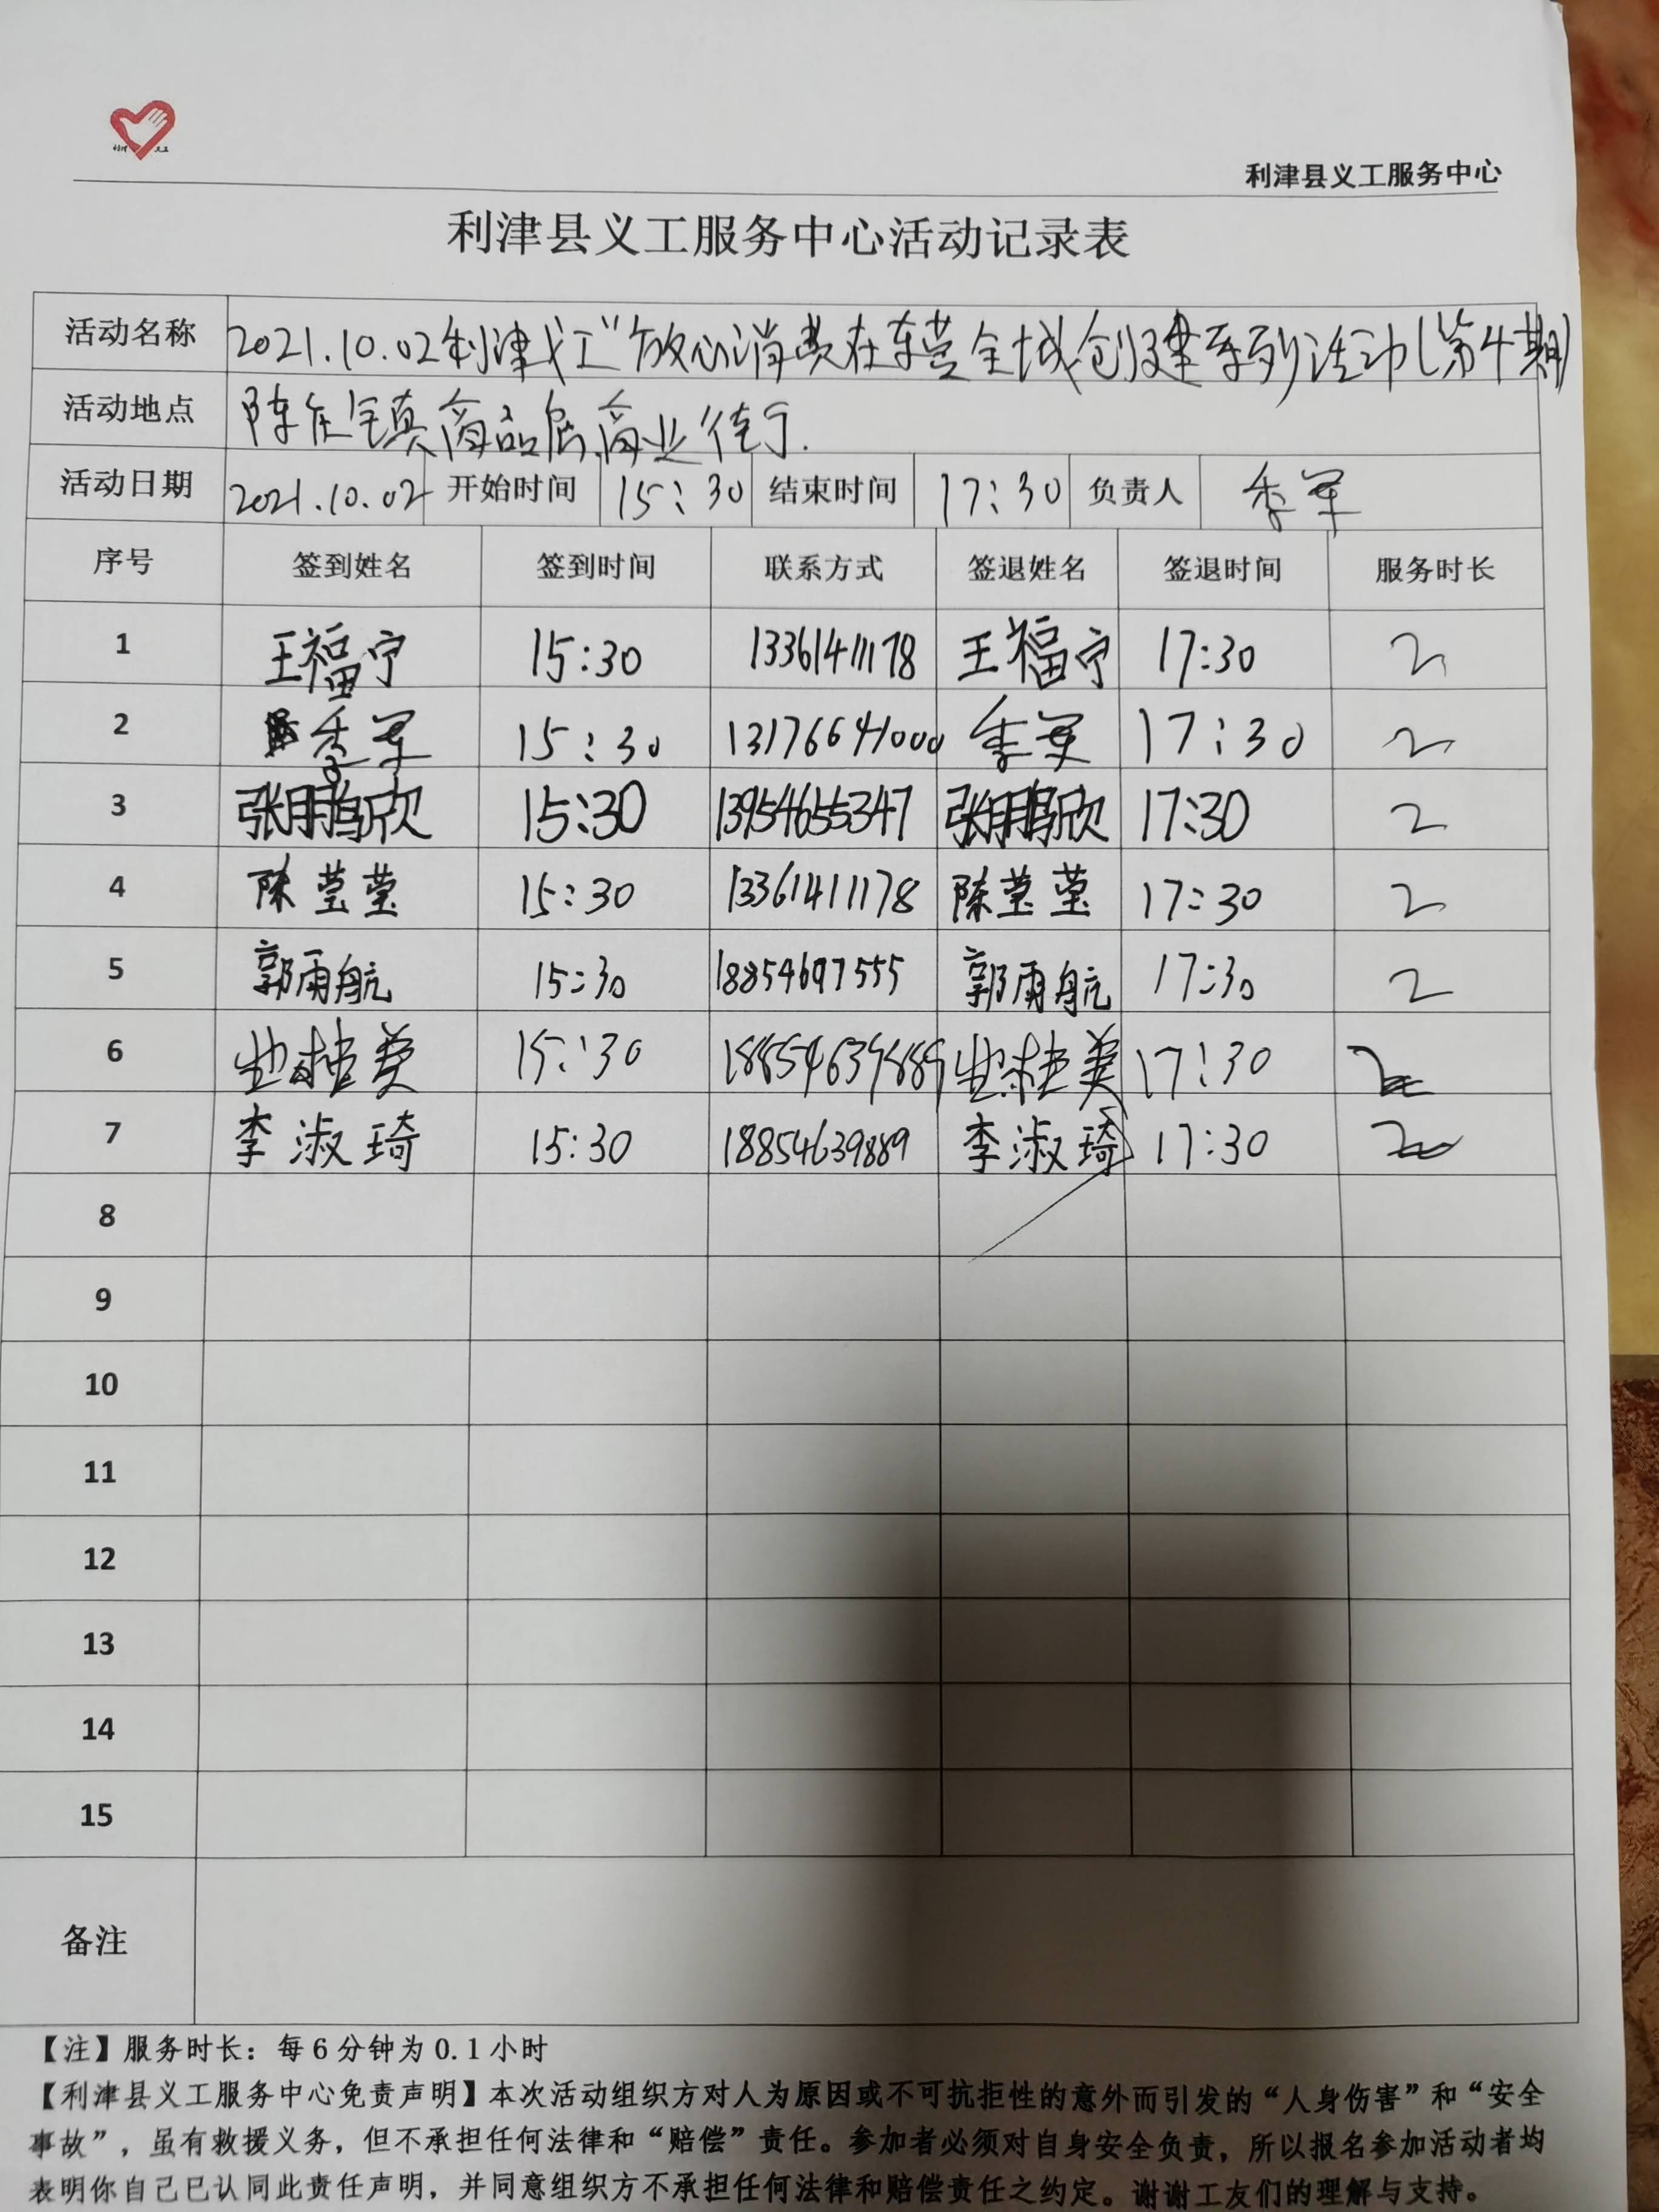 利津 义工
利津县义工服务中心
利津县义工服务中心活动记录表
活动名称 2021.10.02利津义工“放心消费在东营全域创建系列活动(第4期)
活动地点 陈庄镇商品房商业街.
活动日期 2021.10.02 开始时间 15:30 结束时间 17:30 负责人 季军
序号 签到姓名 签到时间 联系方式 签退姓名 签退时间 服务时长
1 王福宁 15:30 13361411178 王福宁 17:30 2
2 季军 15:30 13176641000 季军 17:30 2
3 张鹏欣 15:30 13954655347 张鹏欣 17:30 2
4 陈莹莹 15:30 13361411178 陈莹莹 17:30 2
5 郭雨航 15:30 18854697555 郭雨航 17:30 2
6 15:30 18854639889 17:30 2
7 李淑琦 15:30 18854639889 李淑琦 17:30 2
8
9
10
11
12
13
14
15
备注
【注】服务时长：每6分钟为0.1小时
【利津县义工服务中心免责声明】本次活动组织方对人为原因或不可抗拒性的意外而引发的“人身伤害”和“安全
事故”，虽有救援义务，但不承担任何法律和“赔偿”责任。参加者必须对自身安全负责，所以报名参加活动者均
表明你自己已认同此责任声明，并同意组织方不承担任何法律和赔偿责任之约定。谢谢工友们的理解与支持。